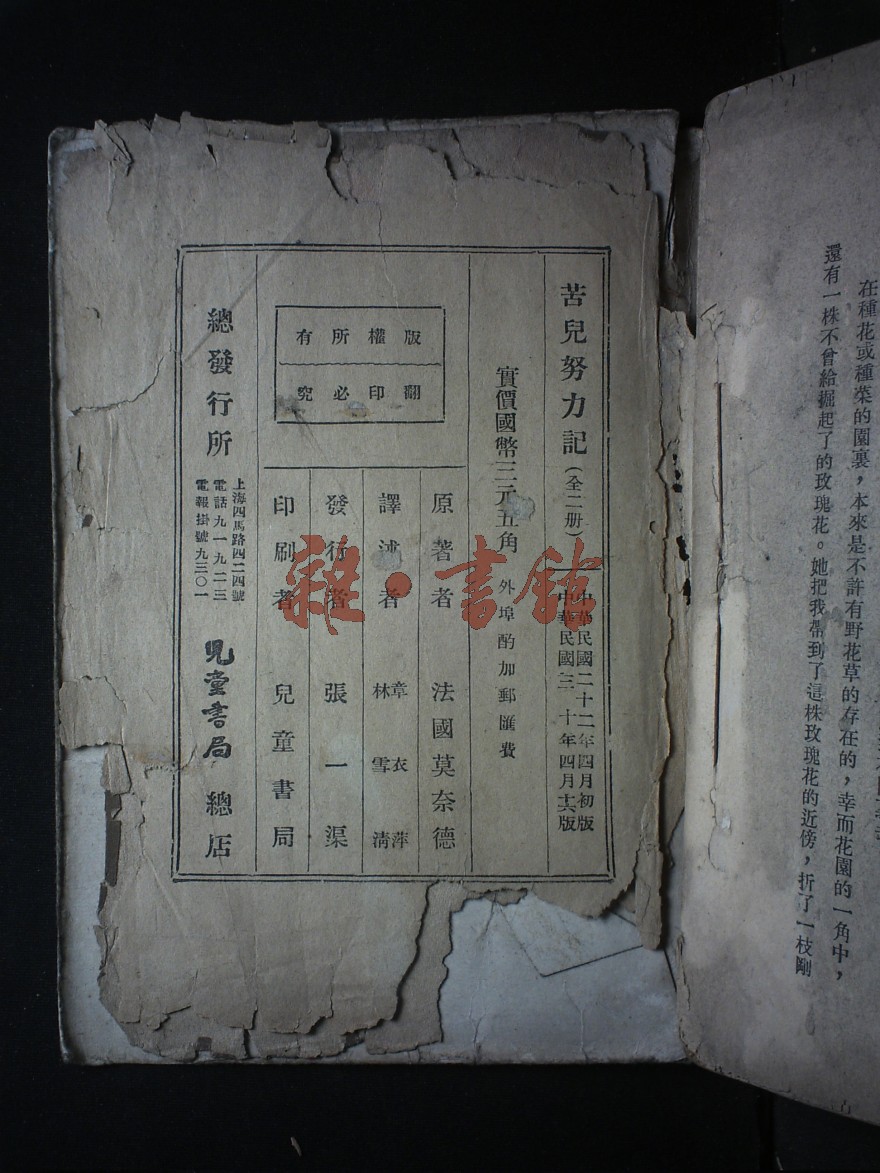 還有一株不曾給掘起了的玫瑰花。她把我帶到了這株玫瑰花的近傍，折了一枝剛
在種花或種菜的園裏，本來是不許有野花草的存在的，幸而花園的一角中，
苦兒努力記（全二册）
中華民國二十二年四月初版
中華民國三十年四月十六版
實價國幣三元五角 外埠酌加郵匯費
版權所有
翻印必究
原著者 法國莫奈德
譯述者 章衣萍
林雪清
發行者 張一渠
印刷者 兒童書局
總發行所
上海四馬路四二四號
電話九一九二三
電報掛號九三〇一
兒童書局 總店
雜·書館